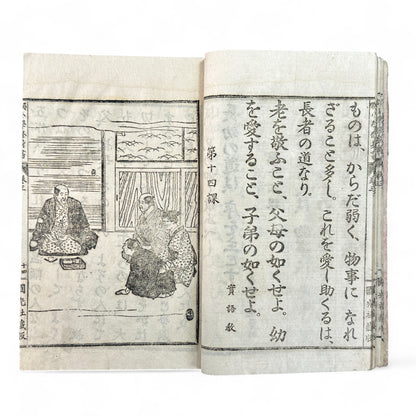 ものは、からだ弱く、物事に なれ
ざること多し。これを愛し助くるは、
長者の道なり。
老を敬ふこと、父母の如くせよ。幼
を愛すること、子弟の如くせよ。
實語教
第十四課